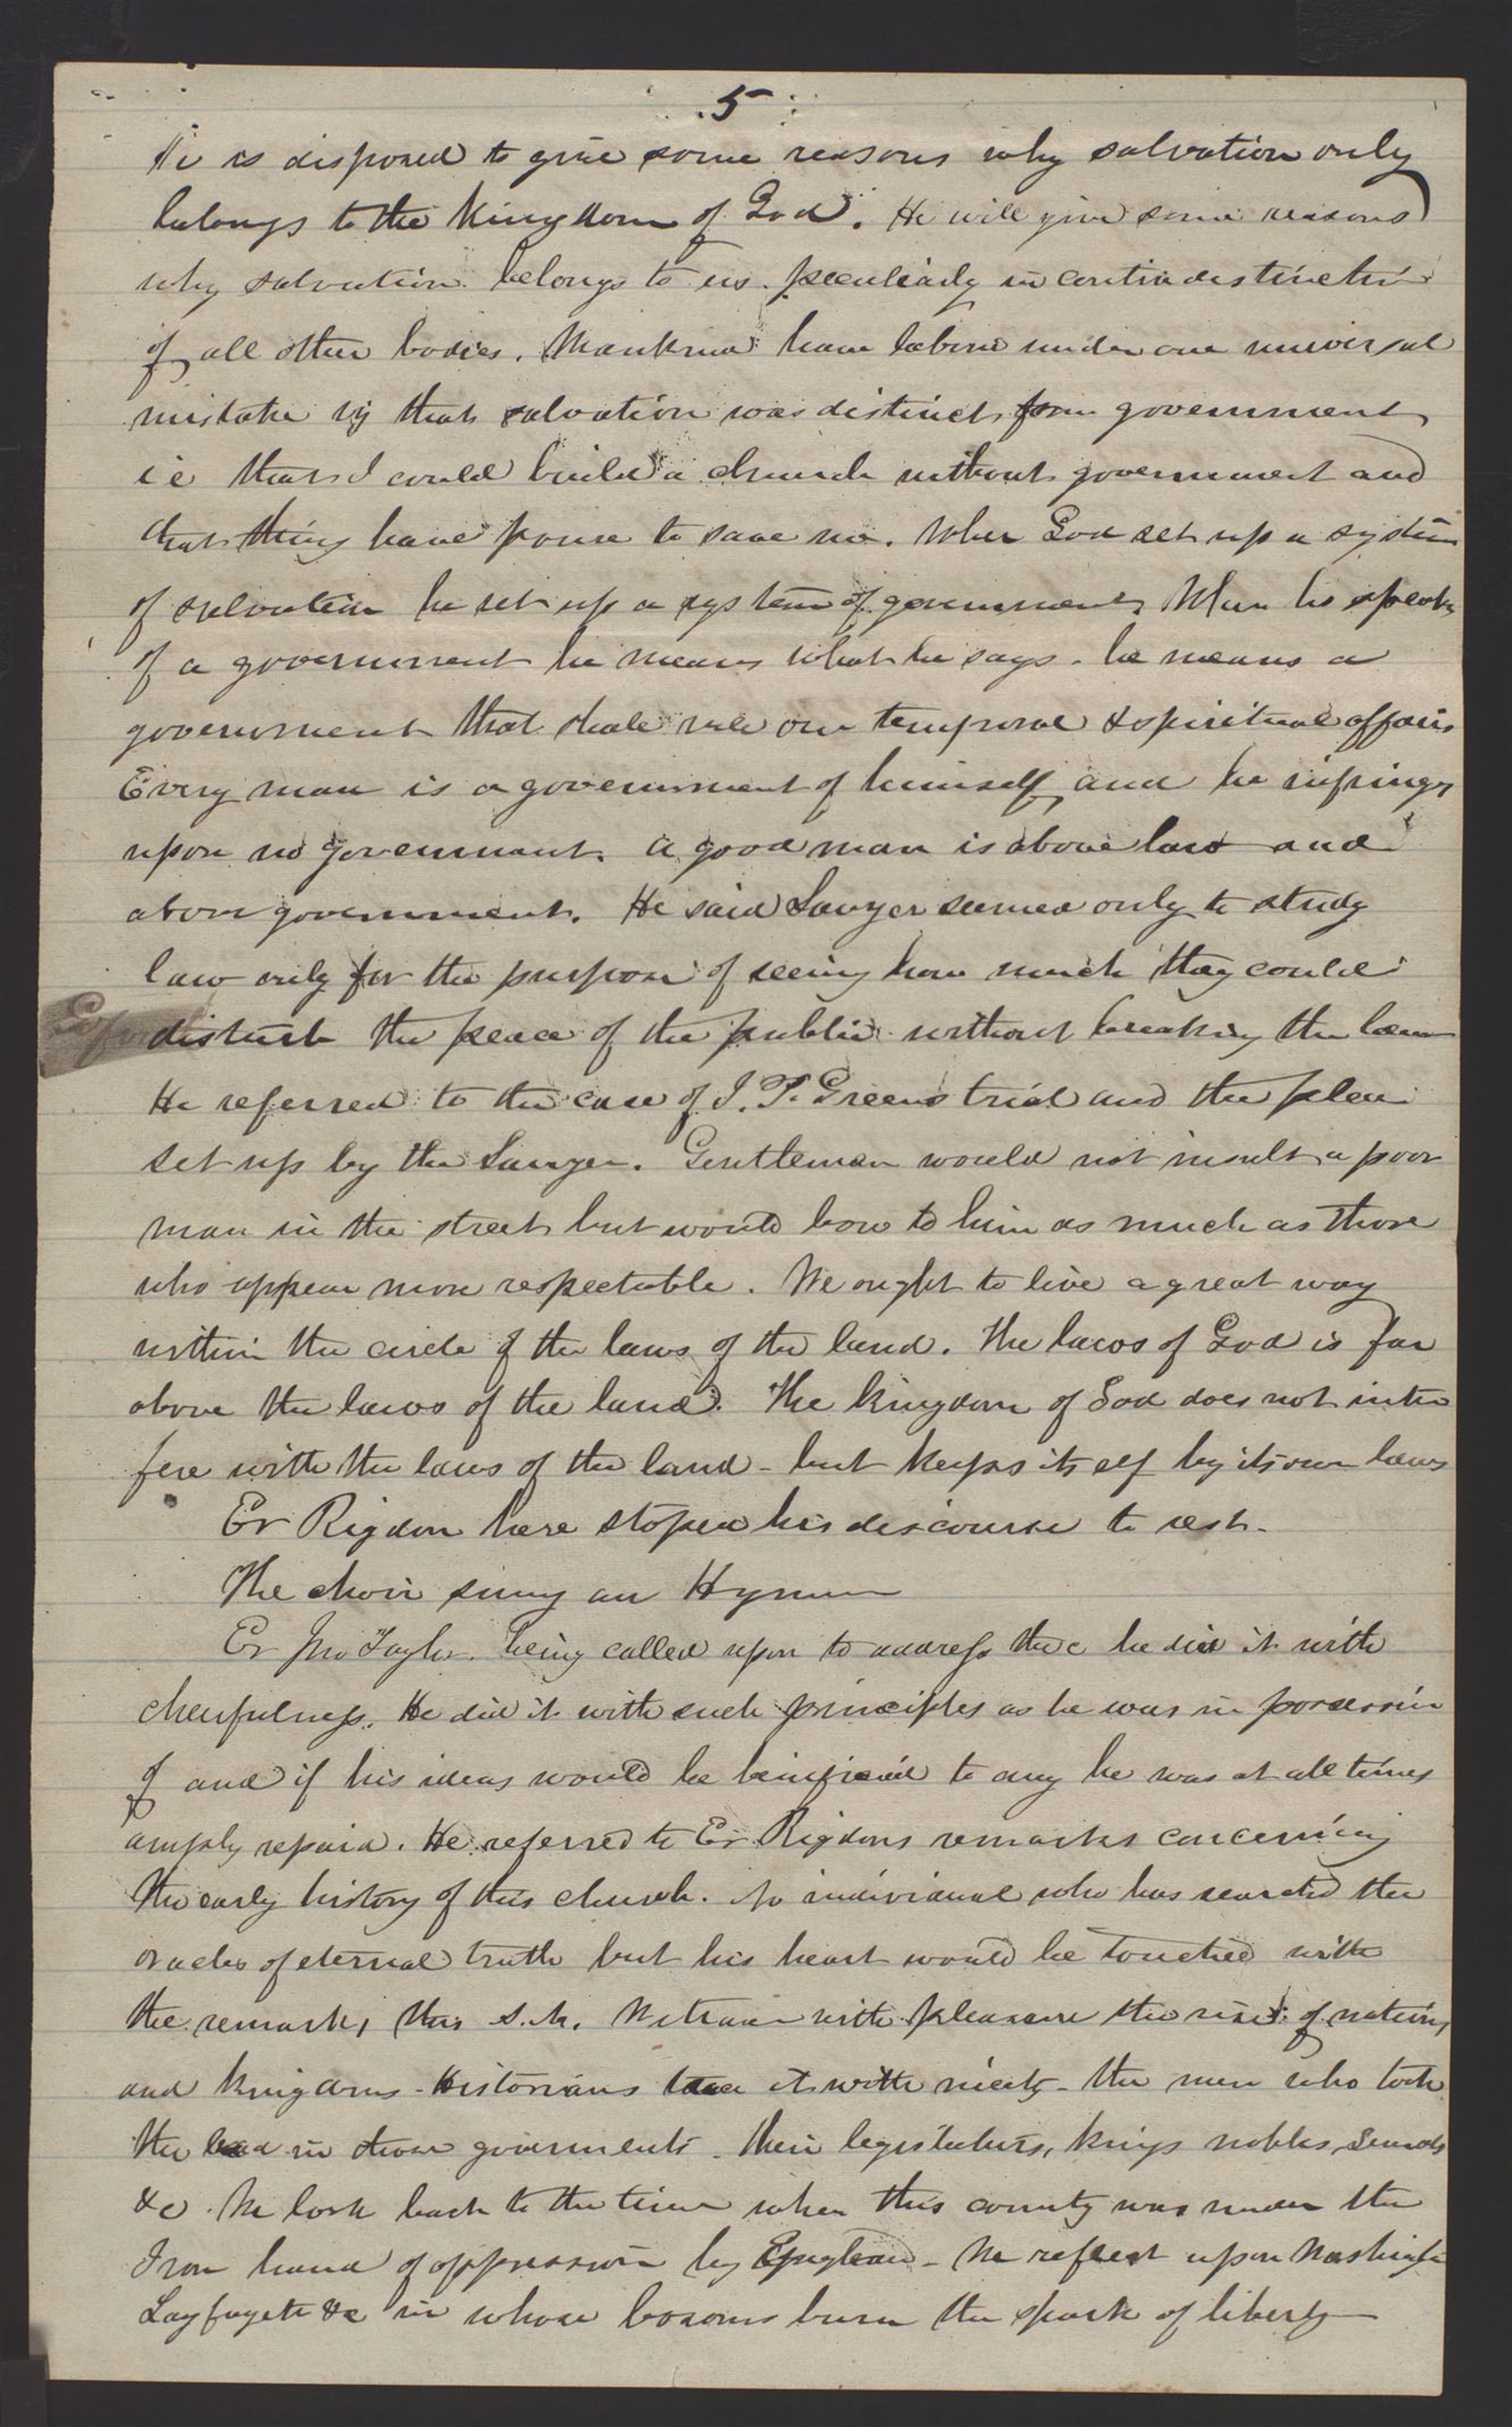 5
He is disposed to give some reasons why salvation only
belongs to the Kingdom of God. He will give some reasons
why salvation belongs to us peculiarly in contradistinction
of all other bodies. Mankind have labored under one universal
mistake viz that salvation was distinct from government
ie that I could build a church without government and
that thing have power to save me. When God set up a system
of salvation he set up a system of government. When he speaks
of a government he means what he says. he means a
government that shall rule our temporal & spiritual affairs
Every man is a government of himself and he infringes
upon no government. A good man is above law and
above government. He said Lawyer seemed only to study
law only for the purpose of seeing how much they could
disturb the peace of the public without breaking the law
He referred to the case of J. P. Greens trial and the plea
set up by the Lawyer. Gentleman would not insult a poor
man in the street but would bow to him as much as those
who appear more respectable. We ought to live a great way
within the circle of the laws of the land. The laws of God is far
above the laws of the land. The kingdom of God does not inter
fere with the laws of the land - but keeps its elf by its own laws
Er Rigdon here stoped his discourse to rest.
The choir sung an Hymn
Er Jno Taylor being called upon to address the c he did it with
cheerfulness. He did it with such principles as he was in possession
of and if his ideas would be beneficial to any he was at all times
amply repaid. He referred to Er Rigdons remarks concerning
the early history of this church. No individual who has searched the
oracles of eternal truth but his heart would be touched with
the remarks this We trace with pleasure the rise of nations
and kingdoms - Historians trace it with nicety - the men who took
the lead in those goverments - their legislators, kings nobles,
&c. We look back to the time when this county was under the
Iron hand of oppression by England - We reflect upon Washington
Layfayete &c in whose bosoms burn the spark of liberty